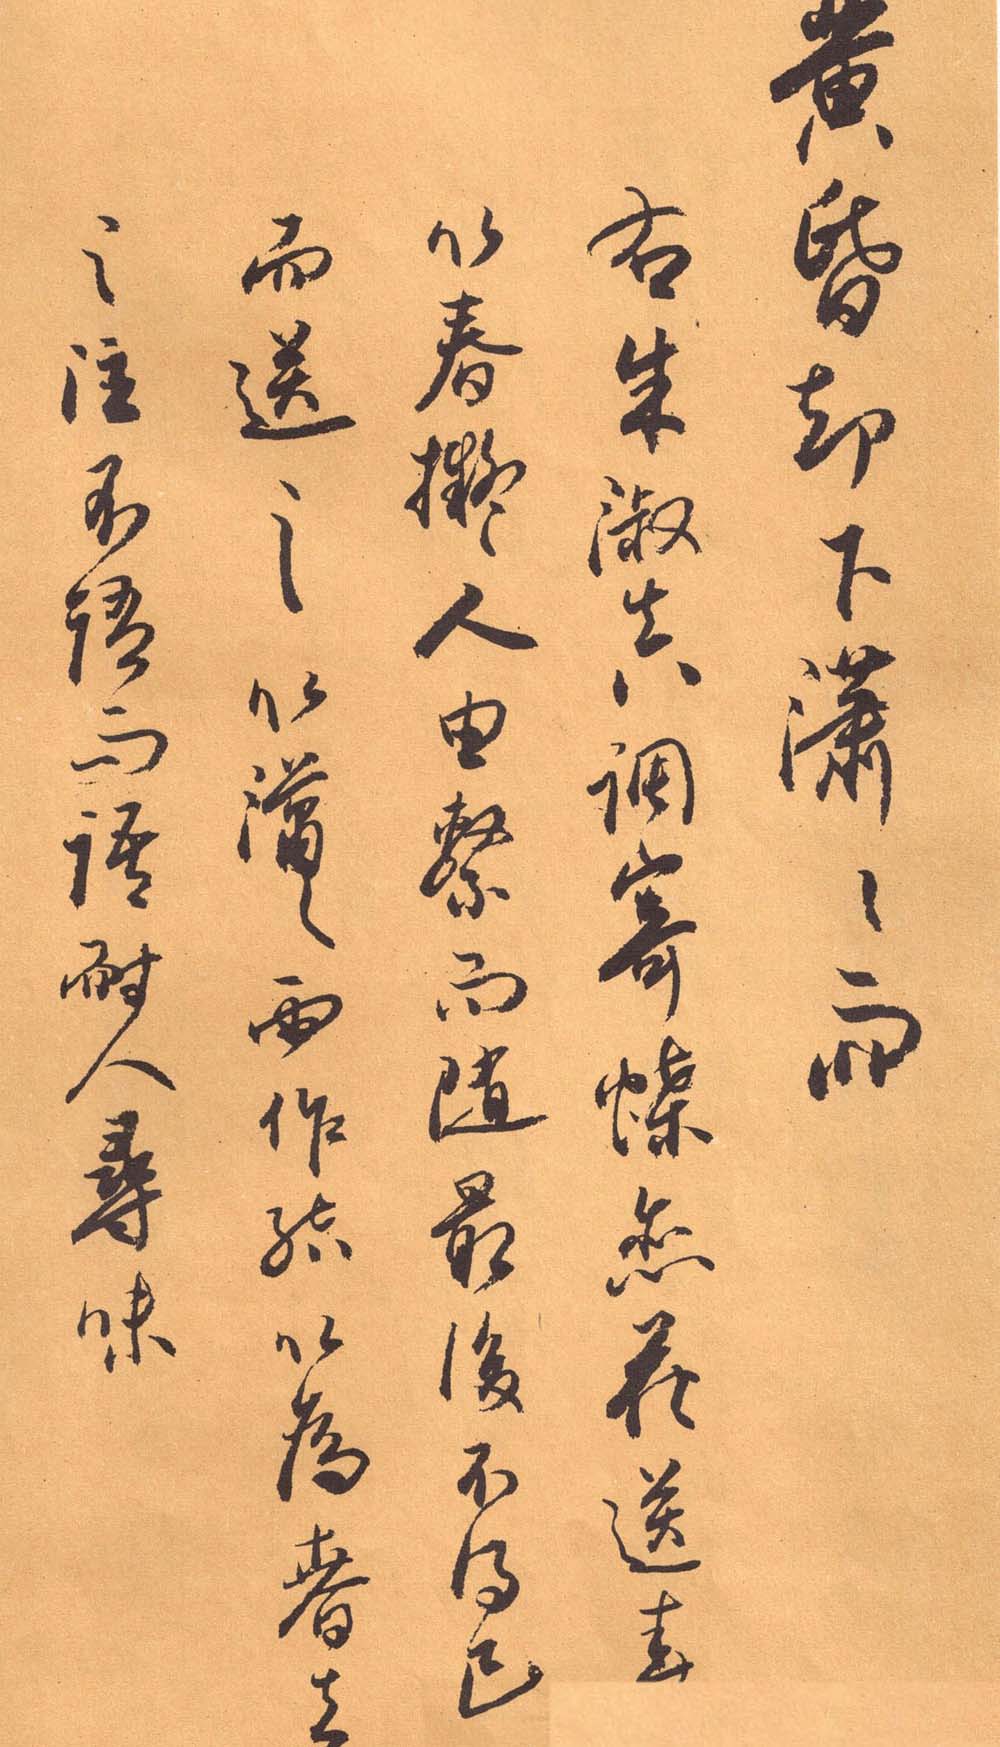 黄昏却下瀟々雨
右朱淑真調寄蝶恋花送春
以春擬人由繫而随最後不得已
而送之以瀟々雨作結以為春去
之注不語而語耐人尋味